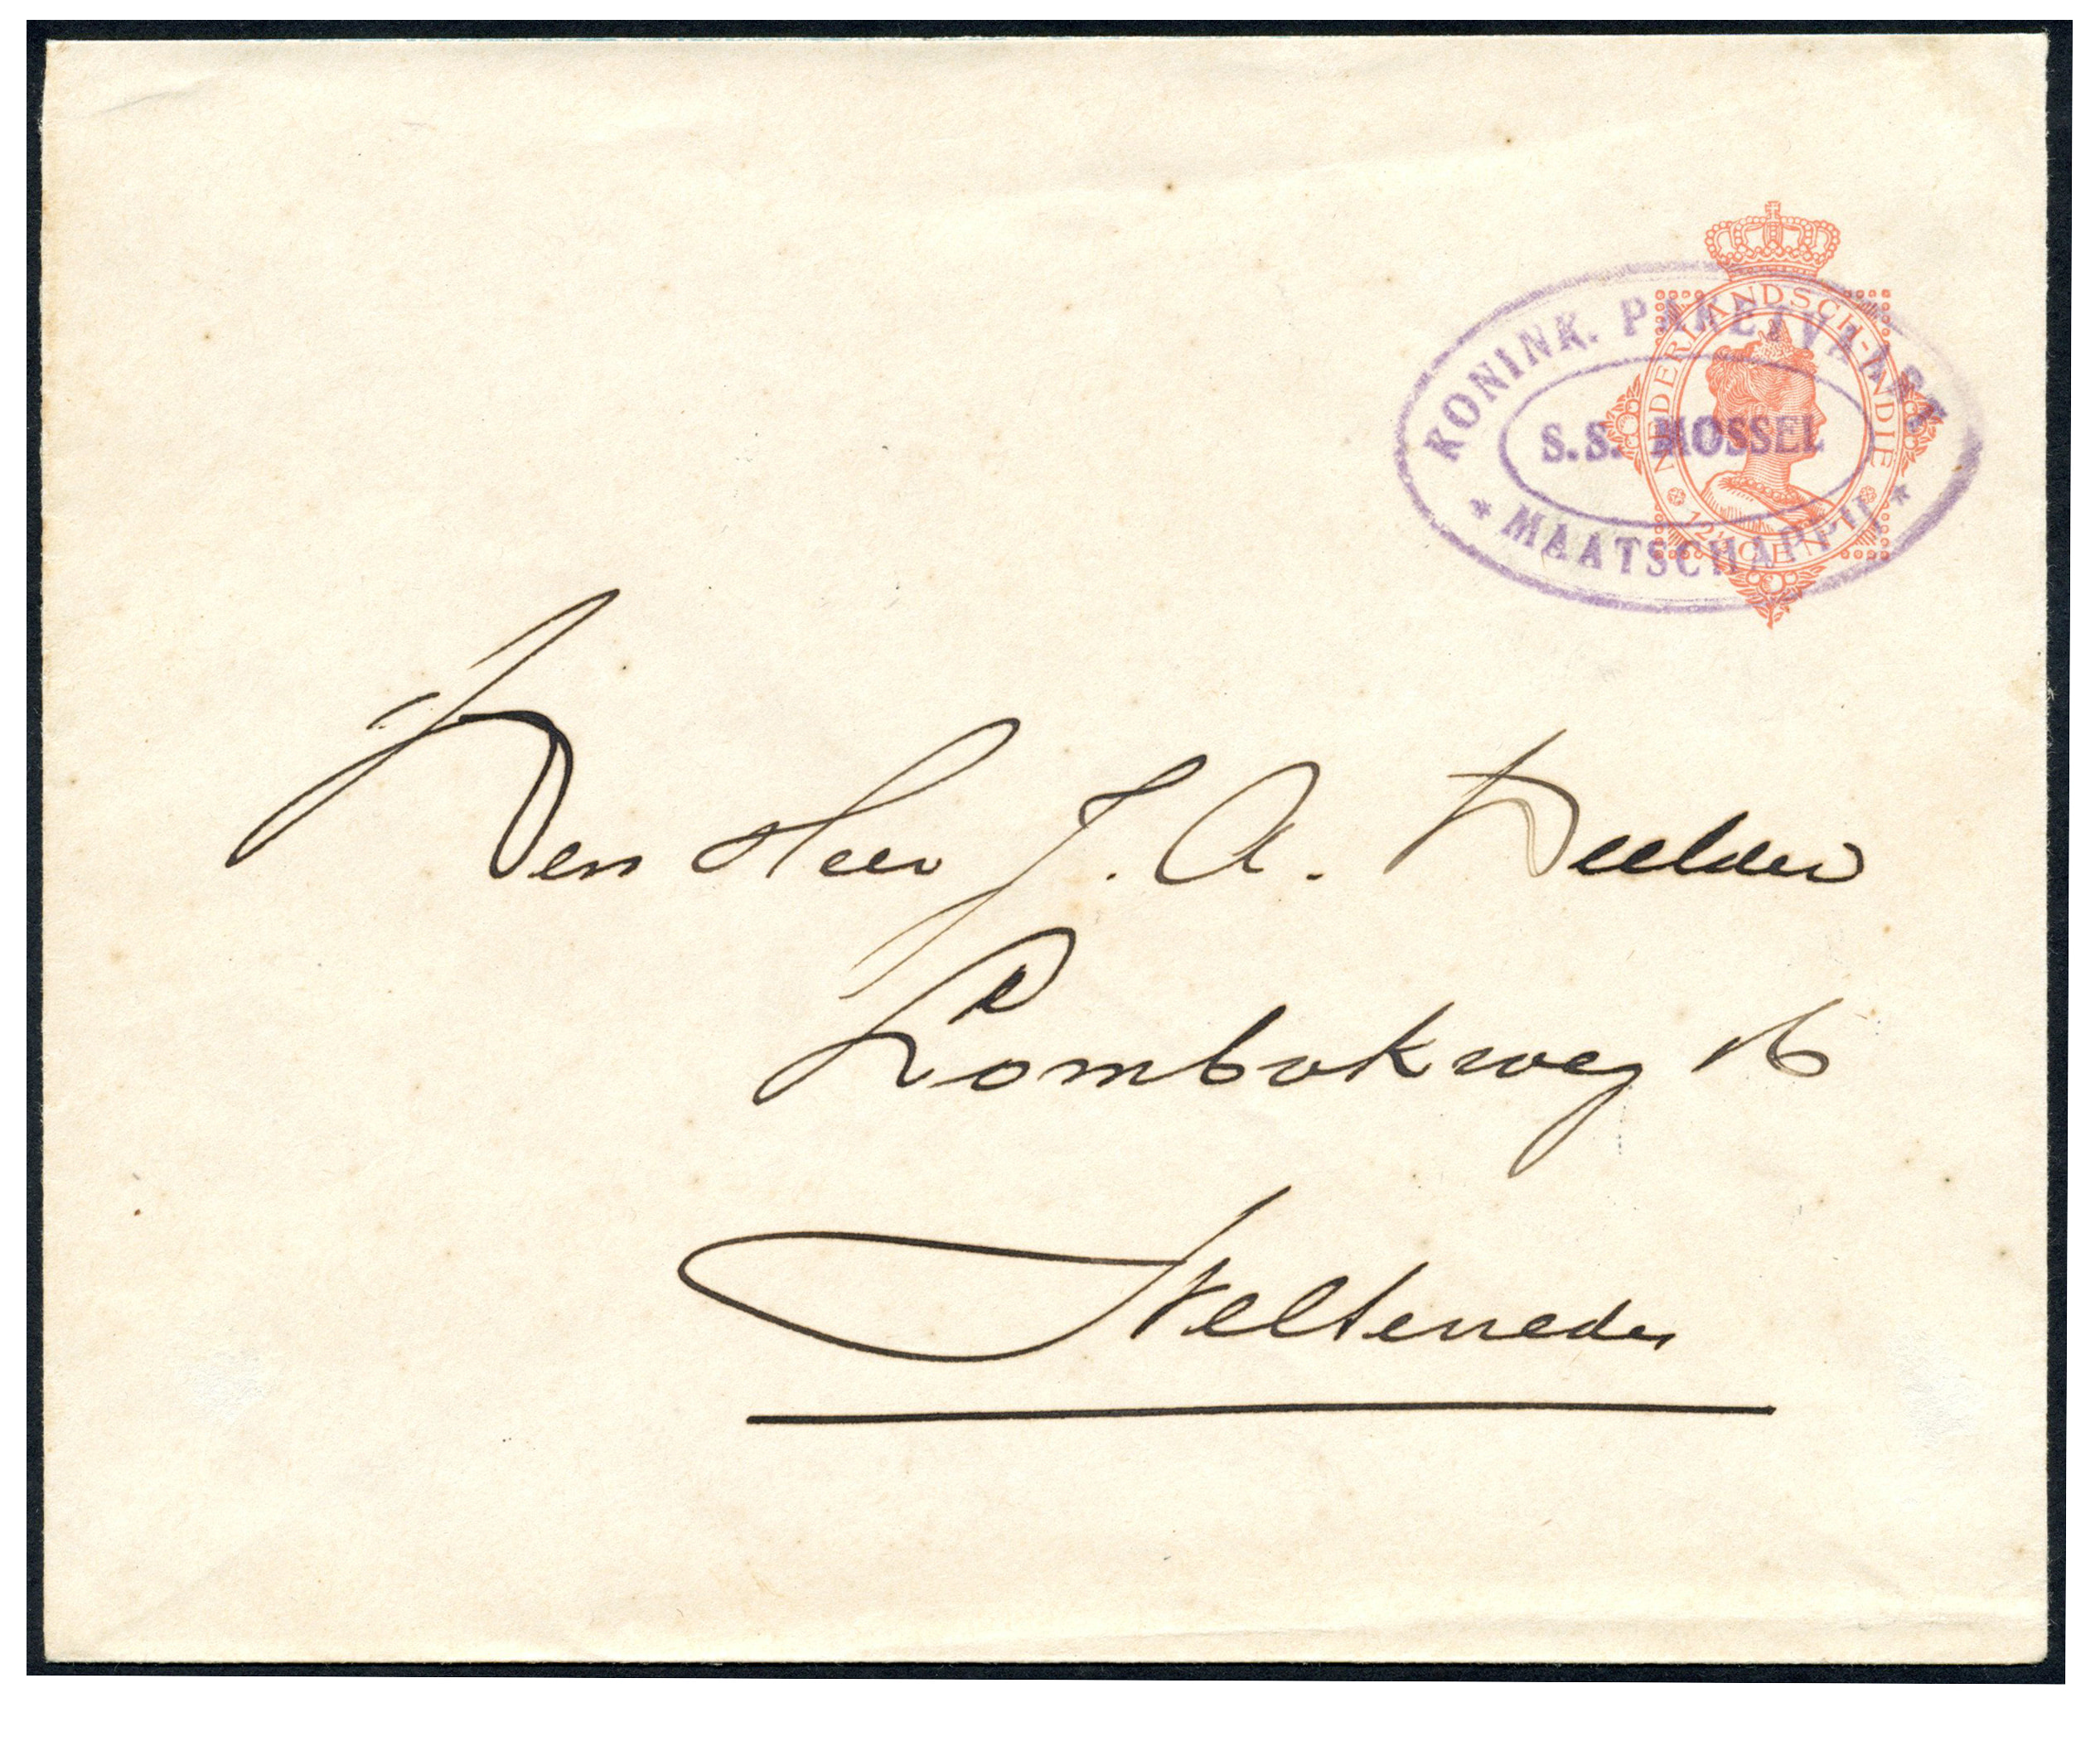 KONINK. PAKETVAART
S.S. MOSSEL
* MAATSCHAPPIJ *
NEDERLANDSCH-INDIE
12½ CENT
Den Heer J. A. Deelder
Lombokweg 16
Weltevreden